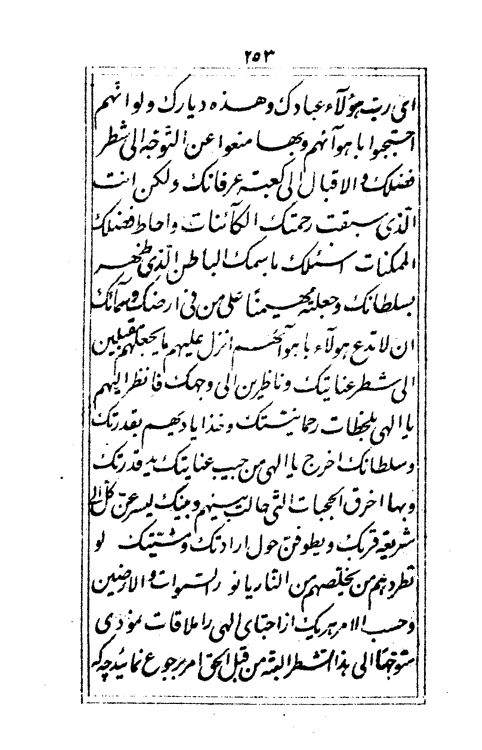 ٢٥٣
ای ربّ هؤلآء عبادک و هذه دیارک ولو انّهم
احتجبوا باهوآئهم و بها منعوا عن التّوجّه الی شطر
فضلک و الاقبال الی کعبة عرفانک ولکن انت
الّذی سبقت رحمتک الکآئنات و احاط فضلک
الممکنات اسئلک باسمک الباطن الّذی ظهر
بسلطانک و جعلته مهیمنًا علی من فی ارضک و سمآئک
ان لا تدع هولآء باهوآئهم انزل علیهم ما یجعلهم مقبلین
الی شطر عنایتک و ناظرین الی وجهک فانظر الیهم
یا الهی بلحظات رحمانیّتک و خذ ایادیهم بقدرتک
و سلطانک اخرج یا الهی من جیب عنایتک ید قدرتک
و بها اخرق الحجبات الّتی حالت بینهم و بینک لیسرعنّ کلّ الی
شریعة قربک و یطوفنّ حول ارادتک و مشیّتک لو
تطردهم من یخلّصهم من النّار یا نور السّموات و الارضین
و حسب الامر هر یک از احبّای الهی را ملاقات نمودی
متوجّهًا الی هذا الشّطر البتّه من قبل الحق امر برجوع نمائید چه که